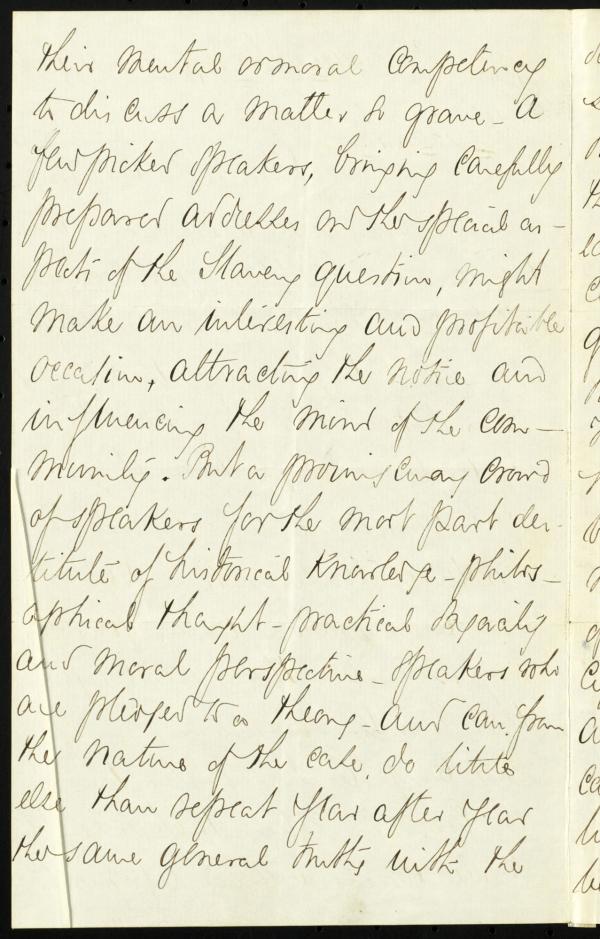 their mental or moral competency
to discuss a matter so grave - A
few picked speakers, bringing carefully
prepared addresses on the special as-
pects of the Slavery question, might
make an interesting and profitable
occasion, attracting the notice and
influencing the mind of the com-
munity. But a promiscuous crowd
of speakers for the most part des-
titute of historical knowledge - philos-
ophical thought - practical sagacity
and moral perspective - speakers who
are pledged to a theory - and can, from
the nature of the case, do little
else than repeat year after year
the same general truths with the